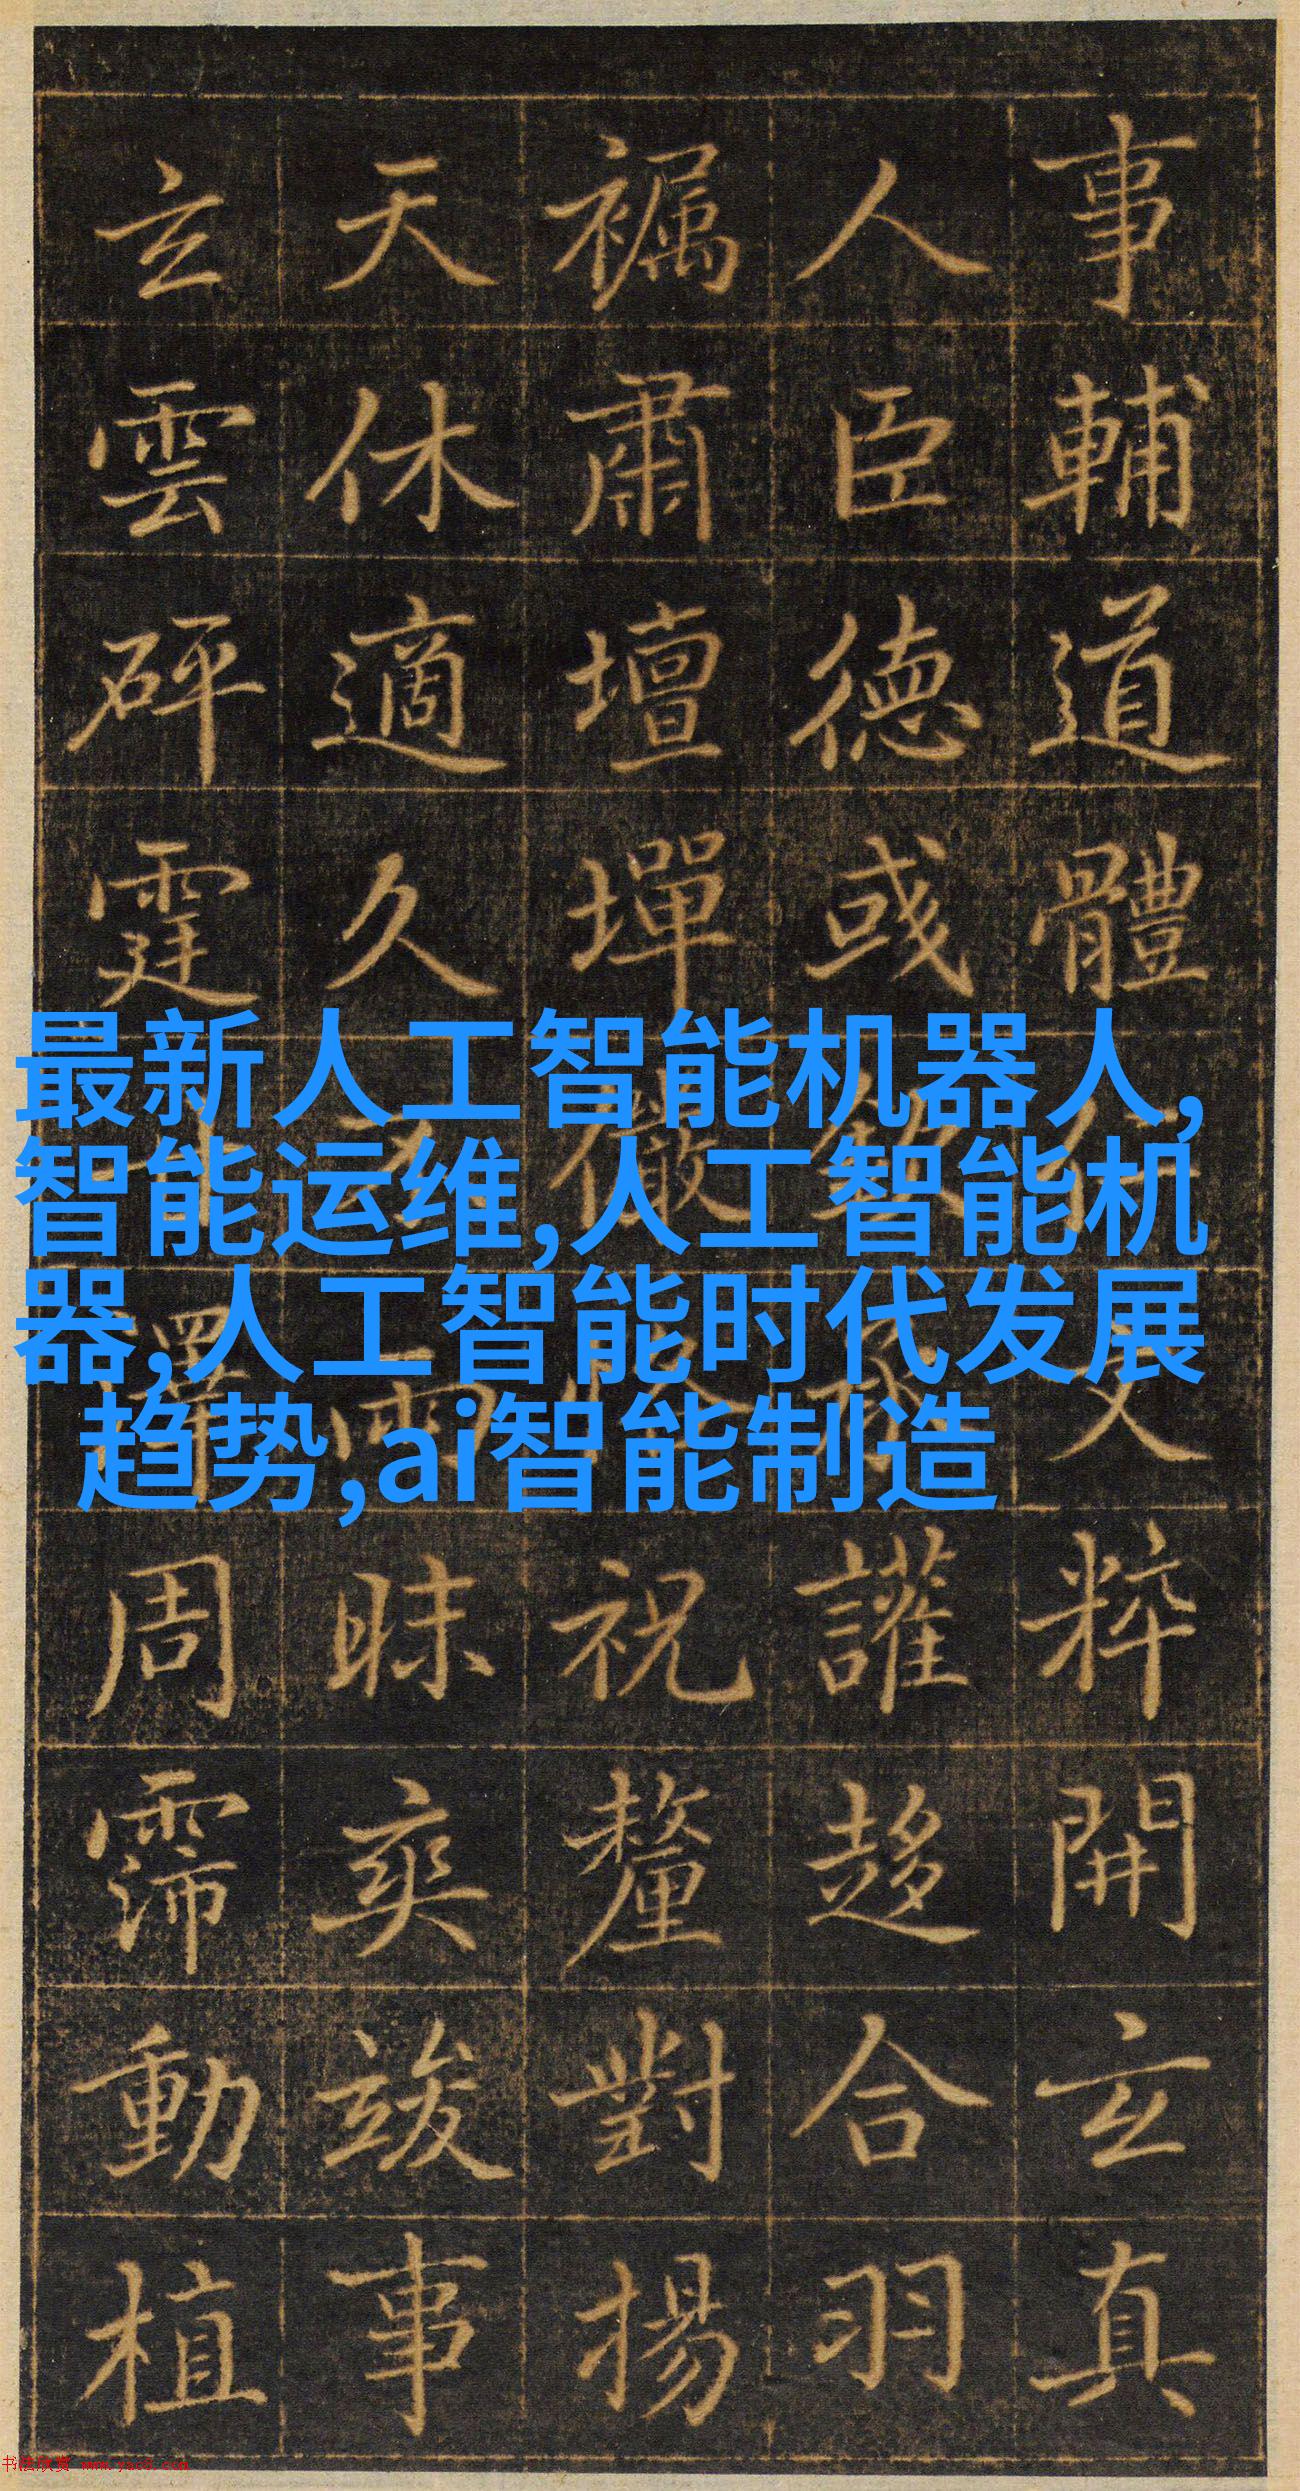 事輔道體文粹開玄真
人臣德或發讙趍合羽
襡肅壇墠儆祝釐對揚
天休適久雨昧爽竣事
玄雲砰霆周霈動植
最新人工智能机器人,
智能运维,人工智能机
器,人工智能时代发展
趋势,ai智能制造
书法欣赏 www.yac8.com